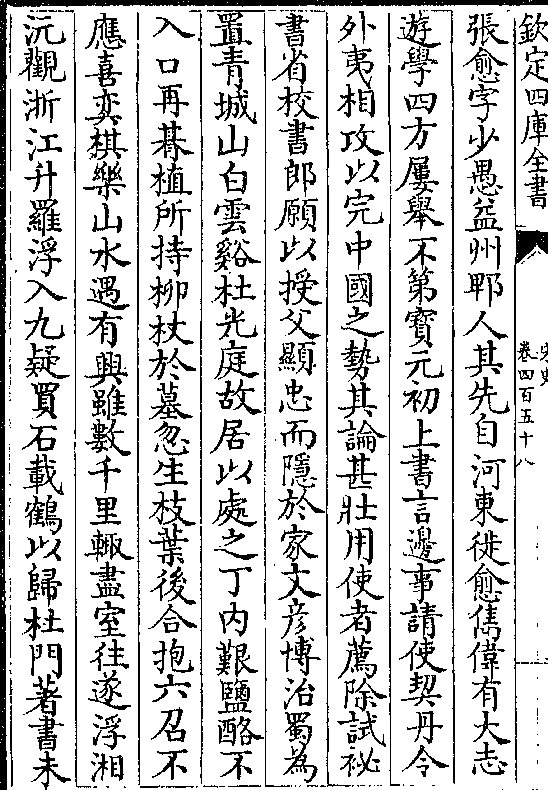 欽定四庫全書
宋史
卷四百五十八
張愈字少愚益州郫人其先自河東徙愈雋偉有大志
遊學四方屢舉不第寶元初上書言邊事請使契丹令
外夷相攻以完中國之勢其論甚壯用使者薦除試祕
書省校書郎願以授父顯忠而隱於家文彦博治蜀為
置青城山白雲谿杜光庭故居以處之丁內艱鹽酪不
入口再朞植所持柳杖於墓忽生枝葉後合抱六召不
應喜奕棋樂山水遇有興雖數千里輒盡室往遂浮湘
沅觀浙江升羅浮入九疑買石載鶴以歸杜門著書未